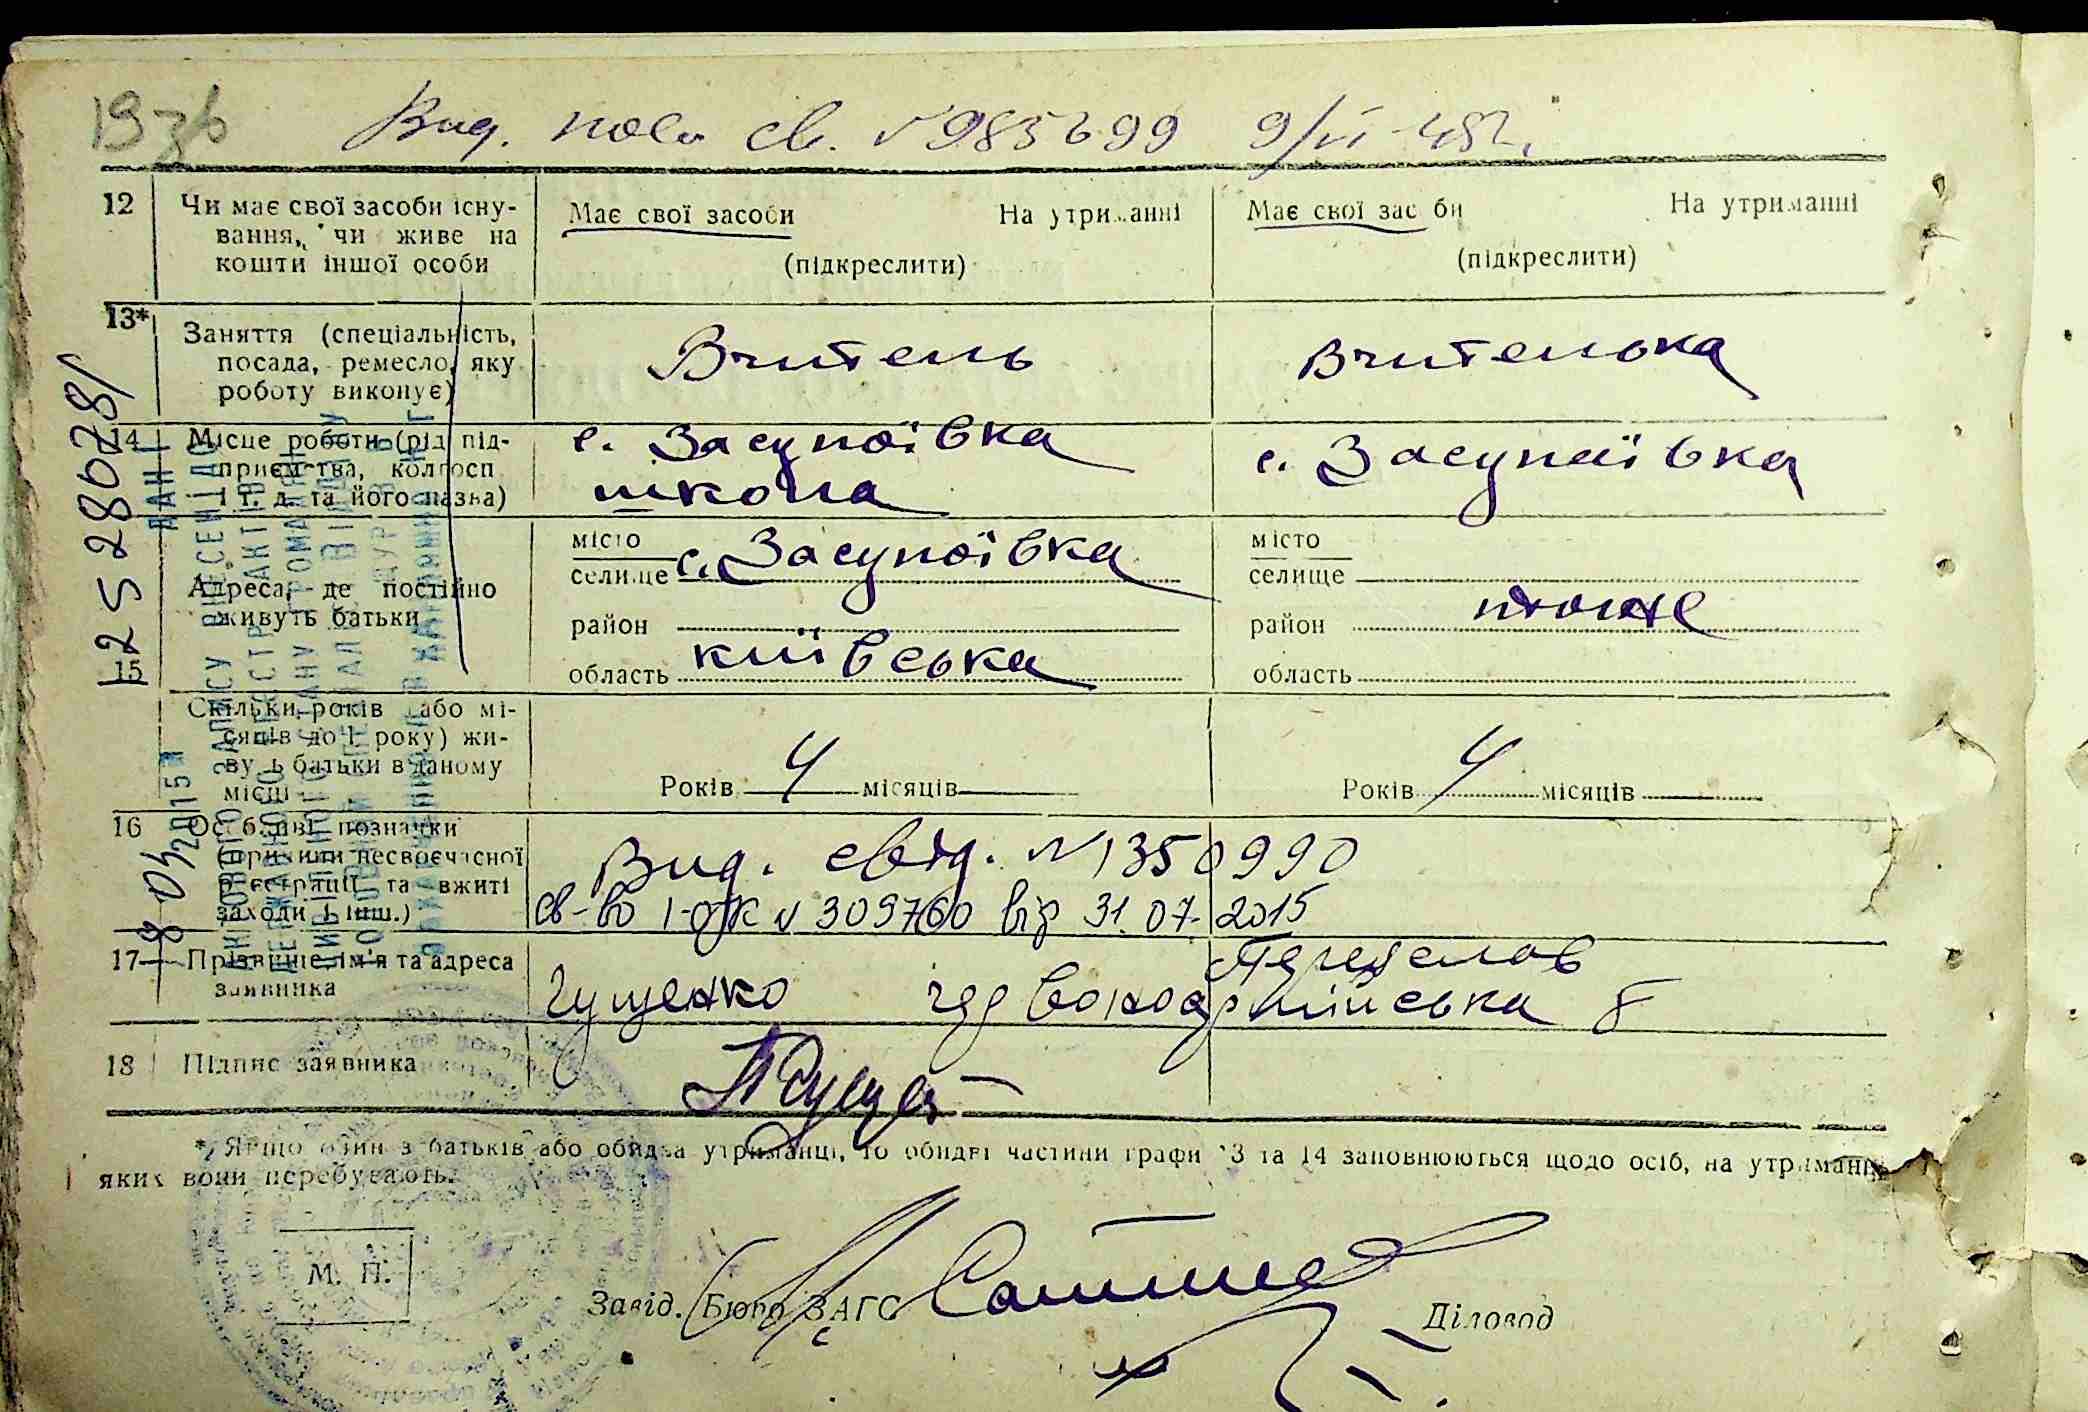 Вид. нов. св. № 985699 9/VI-48 г.
12 Чи має свої засоби існу-
вання, чи живе на
кошти іншої особи
Має свої засоби На утриманні
(підкреслити)
Має свої засоби На утриманні
(підкреслити)
13* Заняття (спеціальність,
посада, ремесло, яку
роботу виконує)
Вчитель
Вчителька
14 Місце роботи (рід під-
приємства, колгосп
і т. д. та його назва)
с. Засупоївка
школа
с. Засупоївка
15 Адреса, де постійно
живуть батьки
місто
селище с. Засупоївка
район
область київська
місто
селище
район тоже
область
Скільки років (або мі-
сяців до 1 року) жи-
вуть батьки в даному
місці
Років 4 місяців
Років 4 місяців
16 Особливі позначки
(причини несвоєчасної
реєстрації та вжиті
заходи і інш.)
Вид. свід. № 1350990
св-во І-ОК № 309760 від 31.07.2015
17 Прізвище, ім'я та адреса
заявника
Гущенко
18 Підпис заявника
* Якщо один з батьків або обидва утриманці, то обидві частини графи 13 та 14 заповнюються щодо осіб, на утриманні
яких вони перебувають.
М. П.
Завід. Бюро ЗАГС
Діловод
12528028/